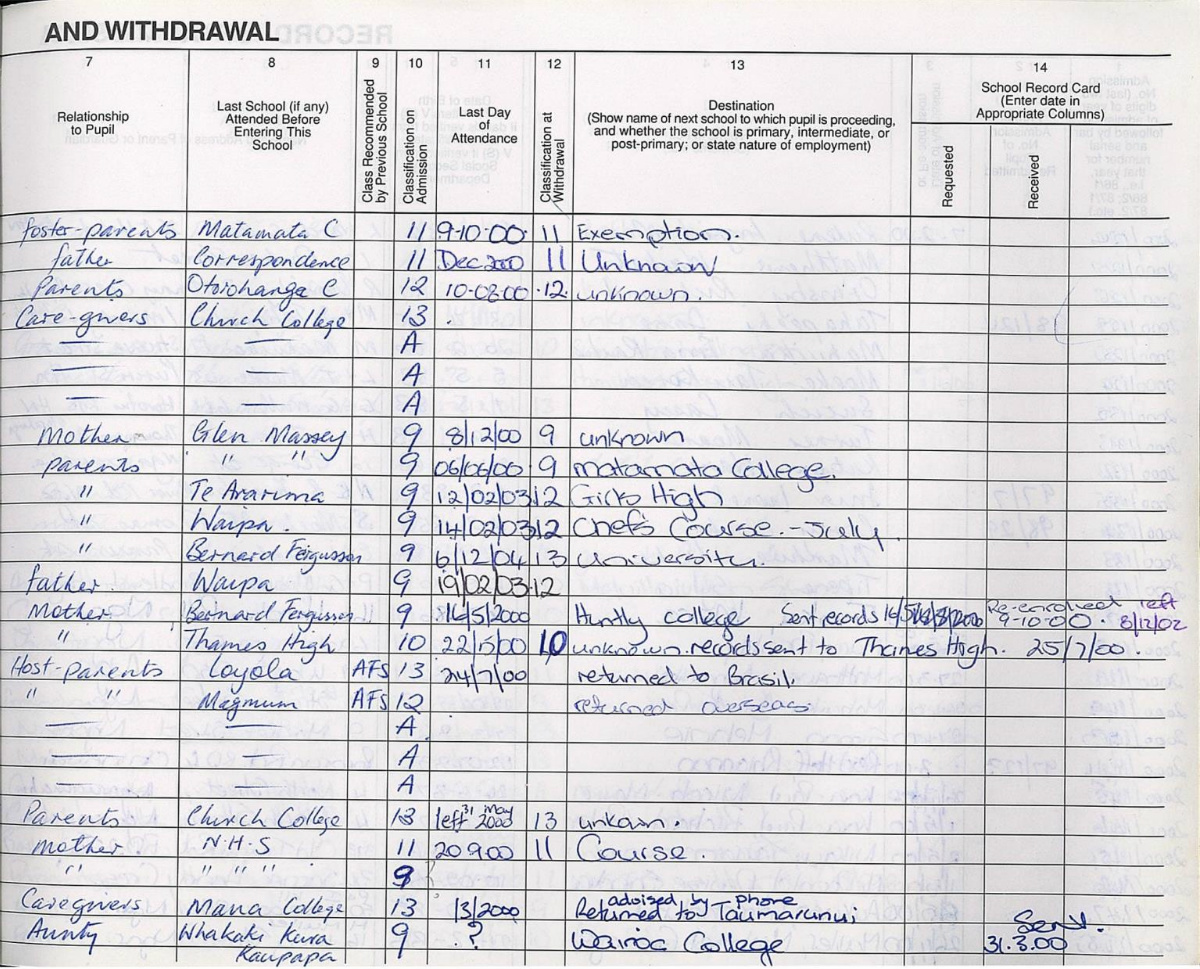 AND WITHDRAWAL
7 8 9 10 11 12 13 14
Relationship to Pupil
Last School (if any) Attended Before Entering This School
Class Recommended by Previous School
Classification on Admission
Last Day of Attendance
Classification at Withdrawal
Destination
(Show name of next school to which pupil is proceeding, and whether the school is primary, intermediate, or post-primary; or state nature of employment)
School Record Card (Enter date in Appropriate Columns)
Requested
Received
foster-parents Matamata C 11 9-10-00 11 Exemption.
father Correspondence 11 Dec 2000 11 Unknown
Parents Otorohanga C 12 10-08-00 12 unknown.
Care-givers Church College 13
— — A
— — A
— — A
Mother Glen Massey 9 8/12/00 9 unknown
parents " " 9 06/06/00 9 matamata College.
" Te Ararima 9 12/02/03 12 High
" Waipa. 9 14/02/03 12 Chefs Course. - July.
" Bernard Fergusson 9 6/12/04 13 University.
father. Waipa 9 19/02/03 12
Mother Bernard Fergusson 9 14/5/2000 Huntly college Sent records Re-enrolled 9-10-00. left 8/12/02
" Thames High 10 22/5/00 10 unknown. records sent to Thames High. 25/7/00.
Host-parents Loyola AFS 13 24/7/00 returned to Brasil.
" " Magnum AFS 12 returned overseas.
— — A
— — A
— — A
Parents Church College 13 left 31 May 2000 13 unkown.
mother. N.H.S 11 20 9.00 11 Course.
" " " " 9
Caregivers Mana College 13 /3/2000 advised by phone Returned to Taumarunui
Aunty Whakaki Kura Kaupapa 9 ? Wairoa College Sent. 31.3.00